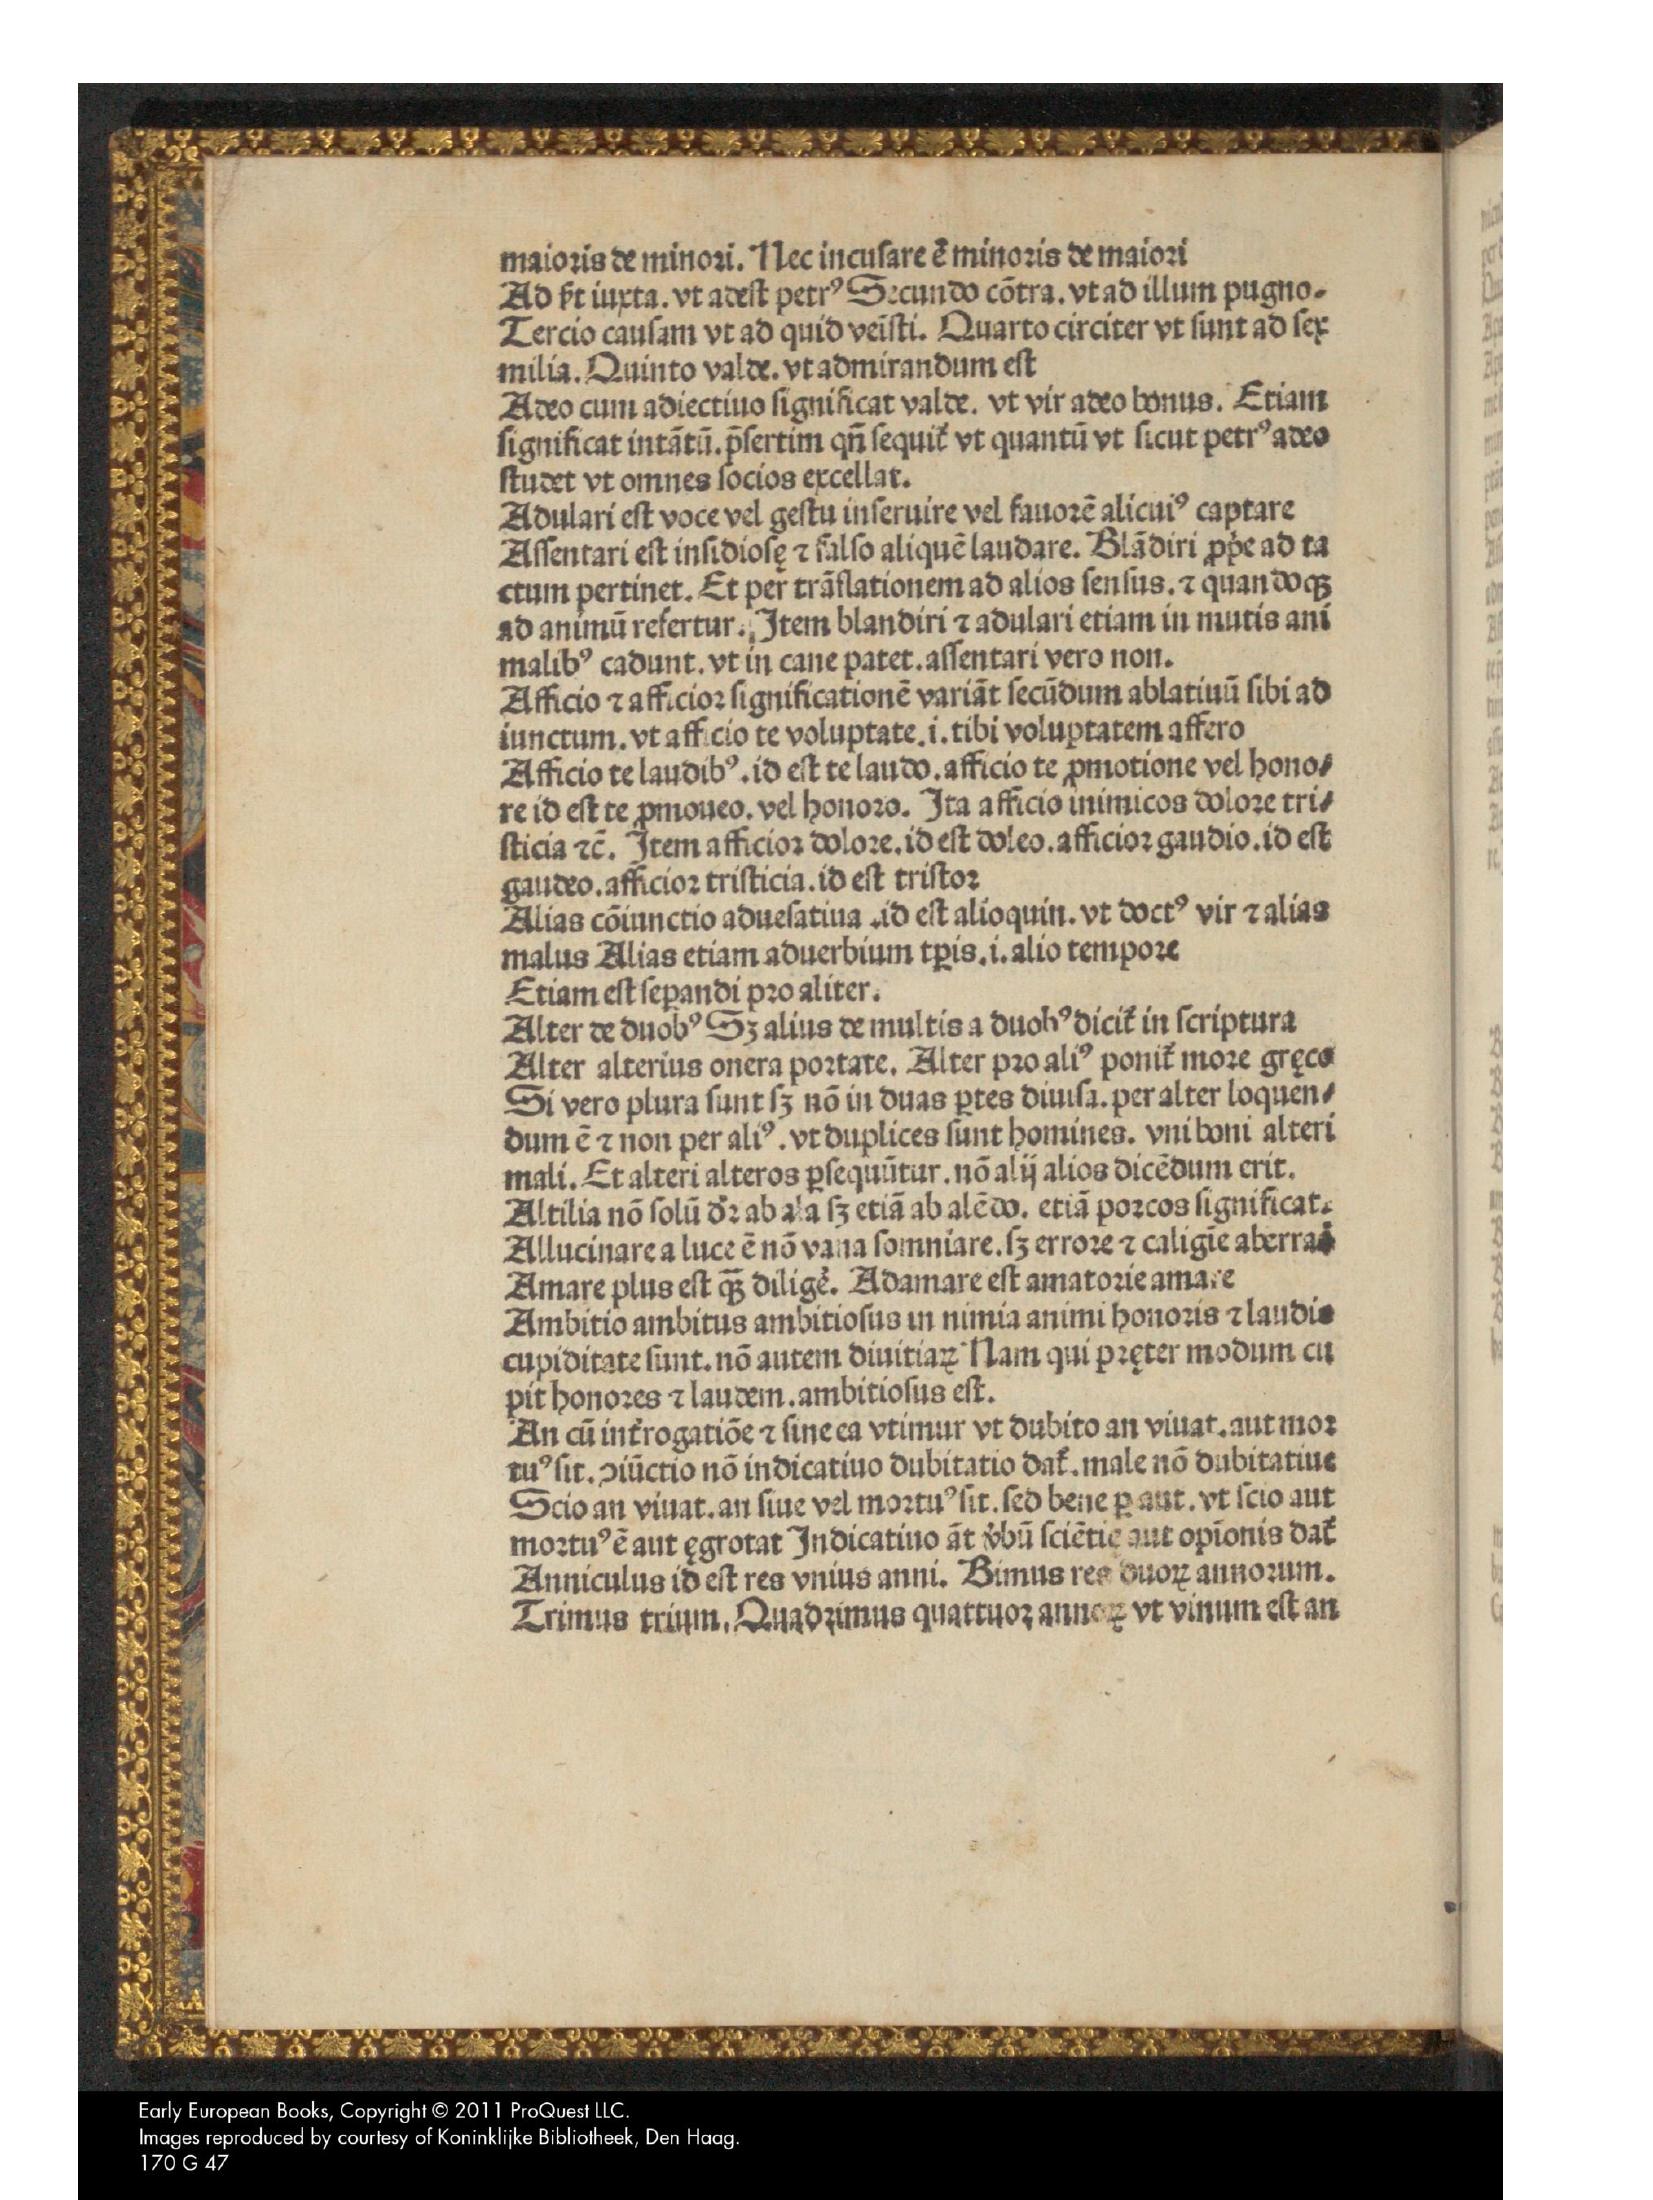 maioris de minori. Nec incusare ē minoris de maiori
Ad iuxta. vt adest petrꝰ Secundo cōtra. vt ad illum pugno.
Tercio causam vt ad quid veīsti. Quarto circiter vt sunt ad sex
milia. Quinto valde. vt admirandum est
Adeo cum adiectiuo significat valde. vt vir adeo bonus. Etiam
significat intātū. p̄sertim qñ sequit᷑ vt quantū vt sicut petrꝰ adeo
studet vt omnes socios excellat.
Adulari est voce vel gestu inseruire vel fauorē alicuiꝰ captare
Assentari est insidiosę ⁊ falso aliquē laudare. Blādiri ꝓp̄e ad ta
ctum pertinet. Et per trāslationem ad alios sensus. ⁊ quandoqꝫ
ad animū refertur. Item blandiri ⁊ adulari etiam in mutis ani
malibꝰ cadunt. vt in cane patet. assentari vero non.
Afficio ⁊ afficior significationē variāt secūdum ablatiuū sibi ad
iunctum. vt afficio te voluptate. i. tibi voluptatem affero
Afficio te laudibꝰ. id est te laudo. afficio te ꝓmotione vel hono/
re id est te ꝓmoueo. vel honoro. Ita afficio inimicos dolore tri/
sticia ⁊c̄. Item afficior dolore. id est doleo. afficior gaudio. id est
gaudeo. afficior tristicia. id est tristor
Alias cōiunctio aduesatiua .id est alioquin. vt doctꝰ vir ⁊ alias
malus Alias etiam aduerbium tꝑis. i. alio tempore
Etiam est seꝑandi pro aliter.
Alter de duobꝰ Sꝫ alius de multis a duobꝰ dicit᷑ in scriptura
Alter alterius onera portate. Alter pro aliꝰ ponit᷑ more gręco
Si vero plura sunt sꝫ nō in duas ꝑtes diuisa. per alter loquen/
dum ē ⁊ non per aliꝰ. vt duplices sunt homines. vni boni alteri
mali. Et alteri alteros ꝑsequūtur. nō alij alios dicēdum erit.
Altilia nō solū dr̄ ab ala sꝫ etiā ab alēdo. etiā porcos significat.
Allucinare a luce ē nō vana somniare. sꝫ errore ⁊ caligīe aberra
Amare plus est qꝫ̄ diligē. Adamare est amatorie amare
Ambitio ambitus ambitiosus in nimia animi honoris ⁊ laudis
cupiditate sunt. nō autem diuitiaꝝ Nam qui pręter modum cu
pit honores ⁊ laudem. ambitiosus est.
An cū int᷑rogatiōe ⁊ sine ea vtimur vt dubito an viuat. aut mor
tuꝰ sit. ↄiūctio nō indicatiuo dubitatio dat᷑. male nō dubitatiue
Scio an viuat. an siue vel mortuꝰ sit. sed bene ꝑ aut. vt scio aut
mortuꝰ ē aut ęgrotat Indicatiuo āt v̄bū sciētię aut opīonis dat᷑
Anniculus id est res vnius anni. Bimus res duoꝝ annorum.
Trimus trium. Quadrimus quattuor annoꝝ vt vinum est an
Early European Books, Copyright © 2011 ProQuest LLC.
Images reproduced by courtesy of Koninklijke Bibliotheek, Den Haag.
170 G 47